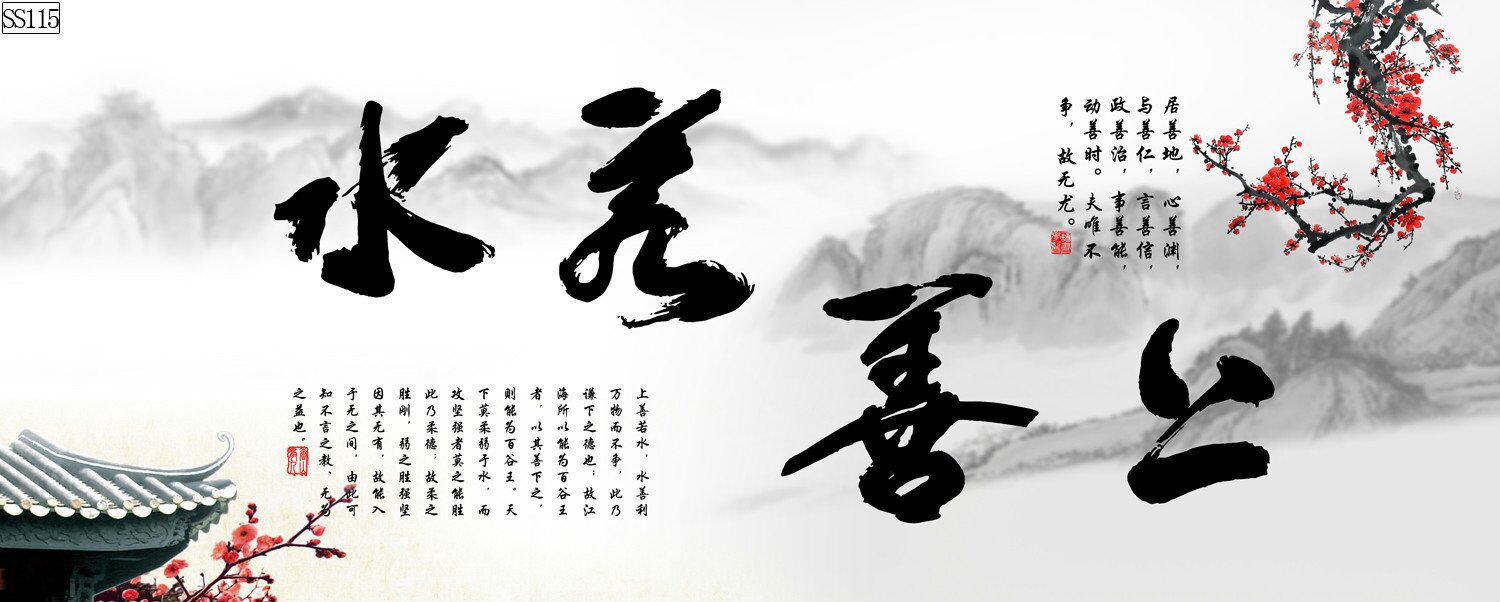 SS115
上善若水
居善地，心善渊，
与善仁，言善信，
政善治，事善能，
动善时。夫唯不
争，故无尤。
上善若水，水善利
万物而不争，此乃
谦下之德也；故江
海所以能为百谷王
者，以其善下之，
则能为百谷王。天
下莫柔弱于水，而
攻坚强者莫之能胜
此乃柔德；故柔之
胜刚，弱之胜强坚
因其无有，故能入
于无之间，由此可
知不言之教、无为
之益也。